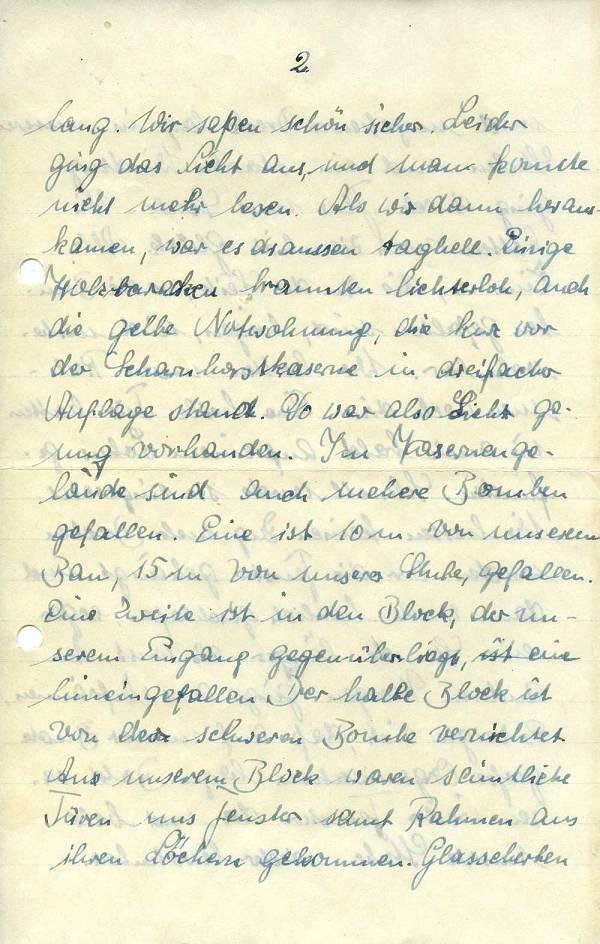 2
lang. Wir saßen schön sicher. Leider
ging das Licht aus, und man konnte
nicht mehr lesen. Als wir dann heraus-
kamen, war es draussen taghell. Einige
Holzbaracken brannten lichterloh, auch
die gelbe Notwohnung, die kurz vor
der Scharnhorstkaserne in dreifacher
Auflage stand. Da war also Licht ge-
nug vorhanden. Im Kasernenge-
lände sind auch mehere Bomben
gefallen. Eine ist 10 m von unserem
Bau, 15 m von unserer Stube, gefallen.
Eine zweite ist in den Block, der un-
serem Eingang gegenüberliegt, ist ein
hineingefallen Der halbe Block ist
von der schweren Bombe vernichtet
Aus unserem Block waren sämtliche
Türen uns Fenster samt Rahmen aus
ihren Löchern gekommen. Glasscherben